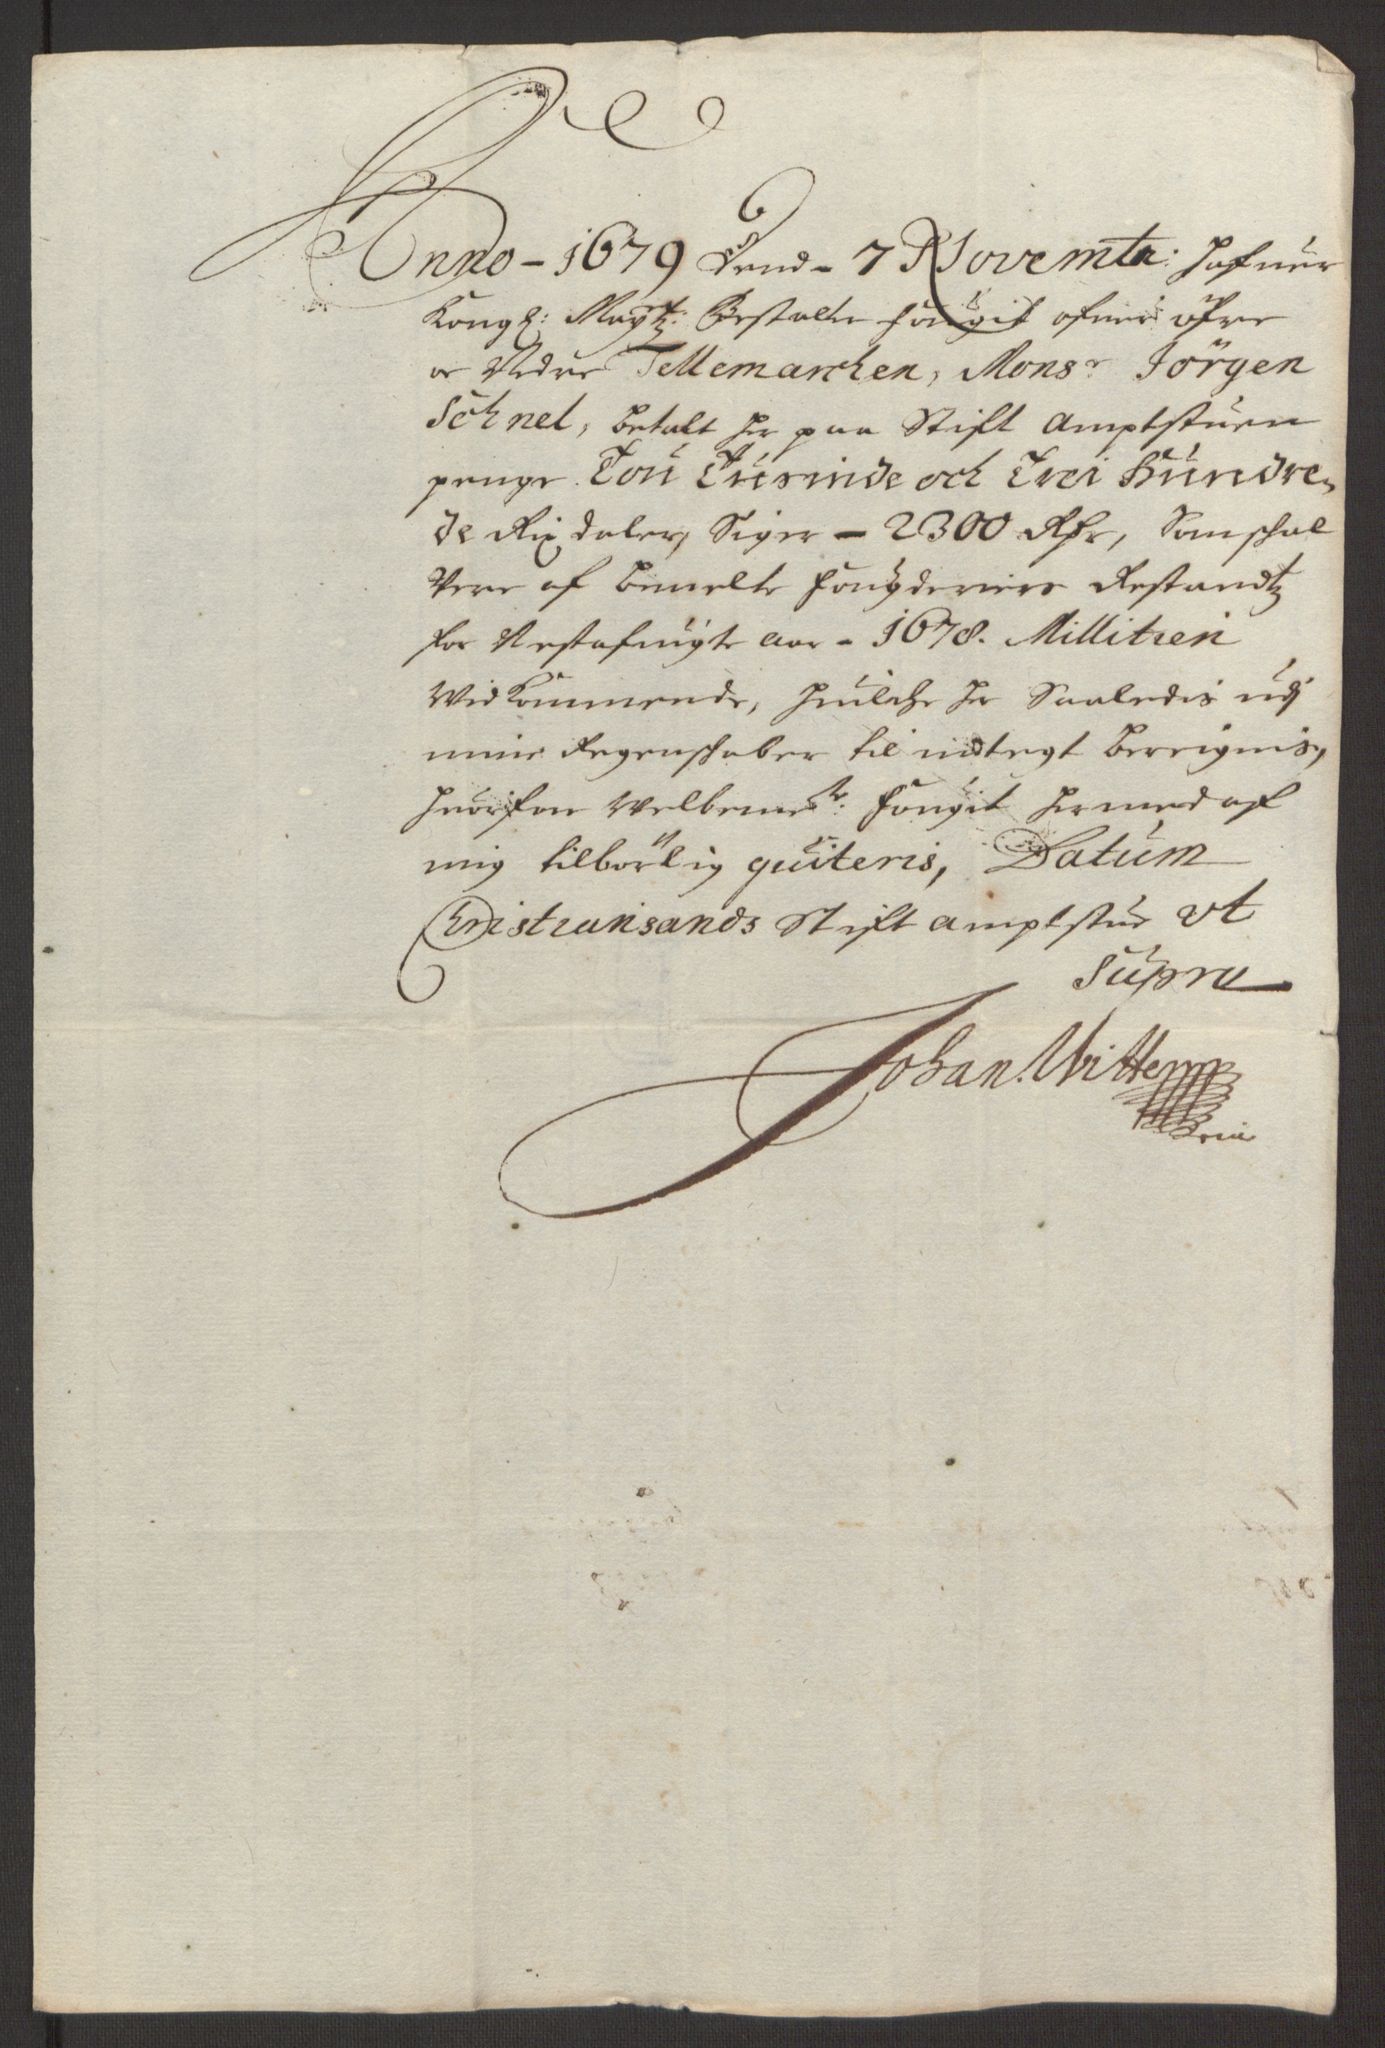 Anno - 1679 Dend - 7 Novembr: hafuer
Kongl: Maytz: Bestalte fougit ofuer öfre
oc Nedre Tellemarchen, Monsr Jörgen
Schnel, betalt her paa Stift Amptstuen
penge Tou Tusinde och Trei Hundre-
de Rixdaler, Siger - 2300 Rdr, Som schal
Vere af bemelte fougderiers Restandtz
for Nestafuigte aar - 1678. Millitien
Vedkommende, huilche her Saaledis udj
mine Regenschaber til indtegt bereignis,
huorfore Velbemte: fougit hermed af
mig tilbörlig quiteris, Datum
Christiansands Stift Amptstue vt
Supra
Johan Wittem